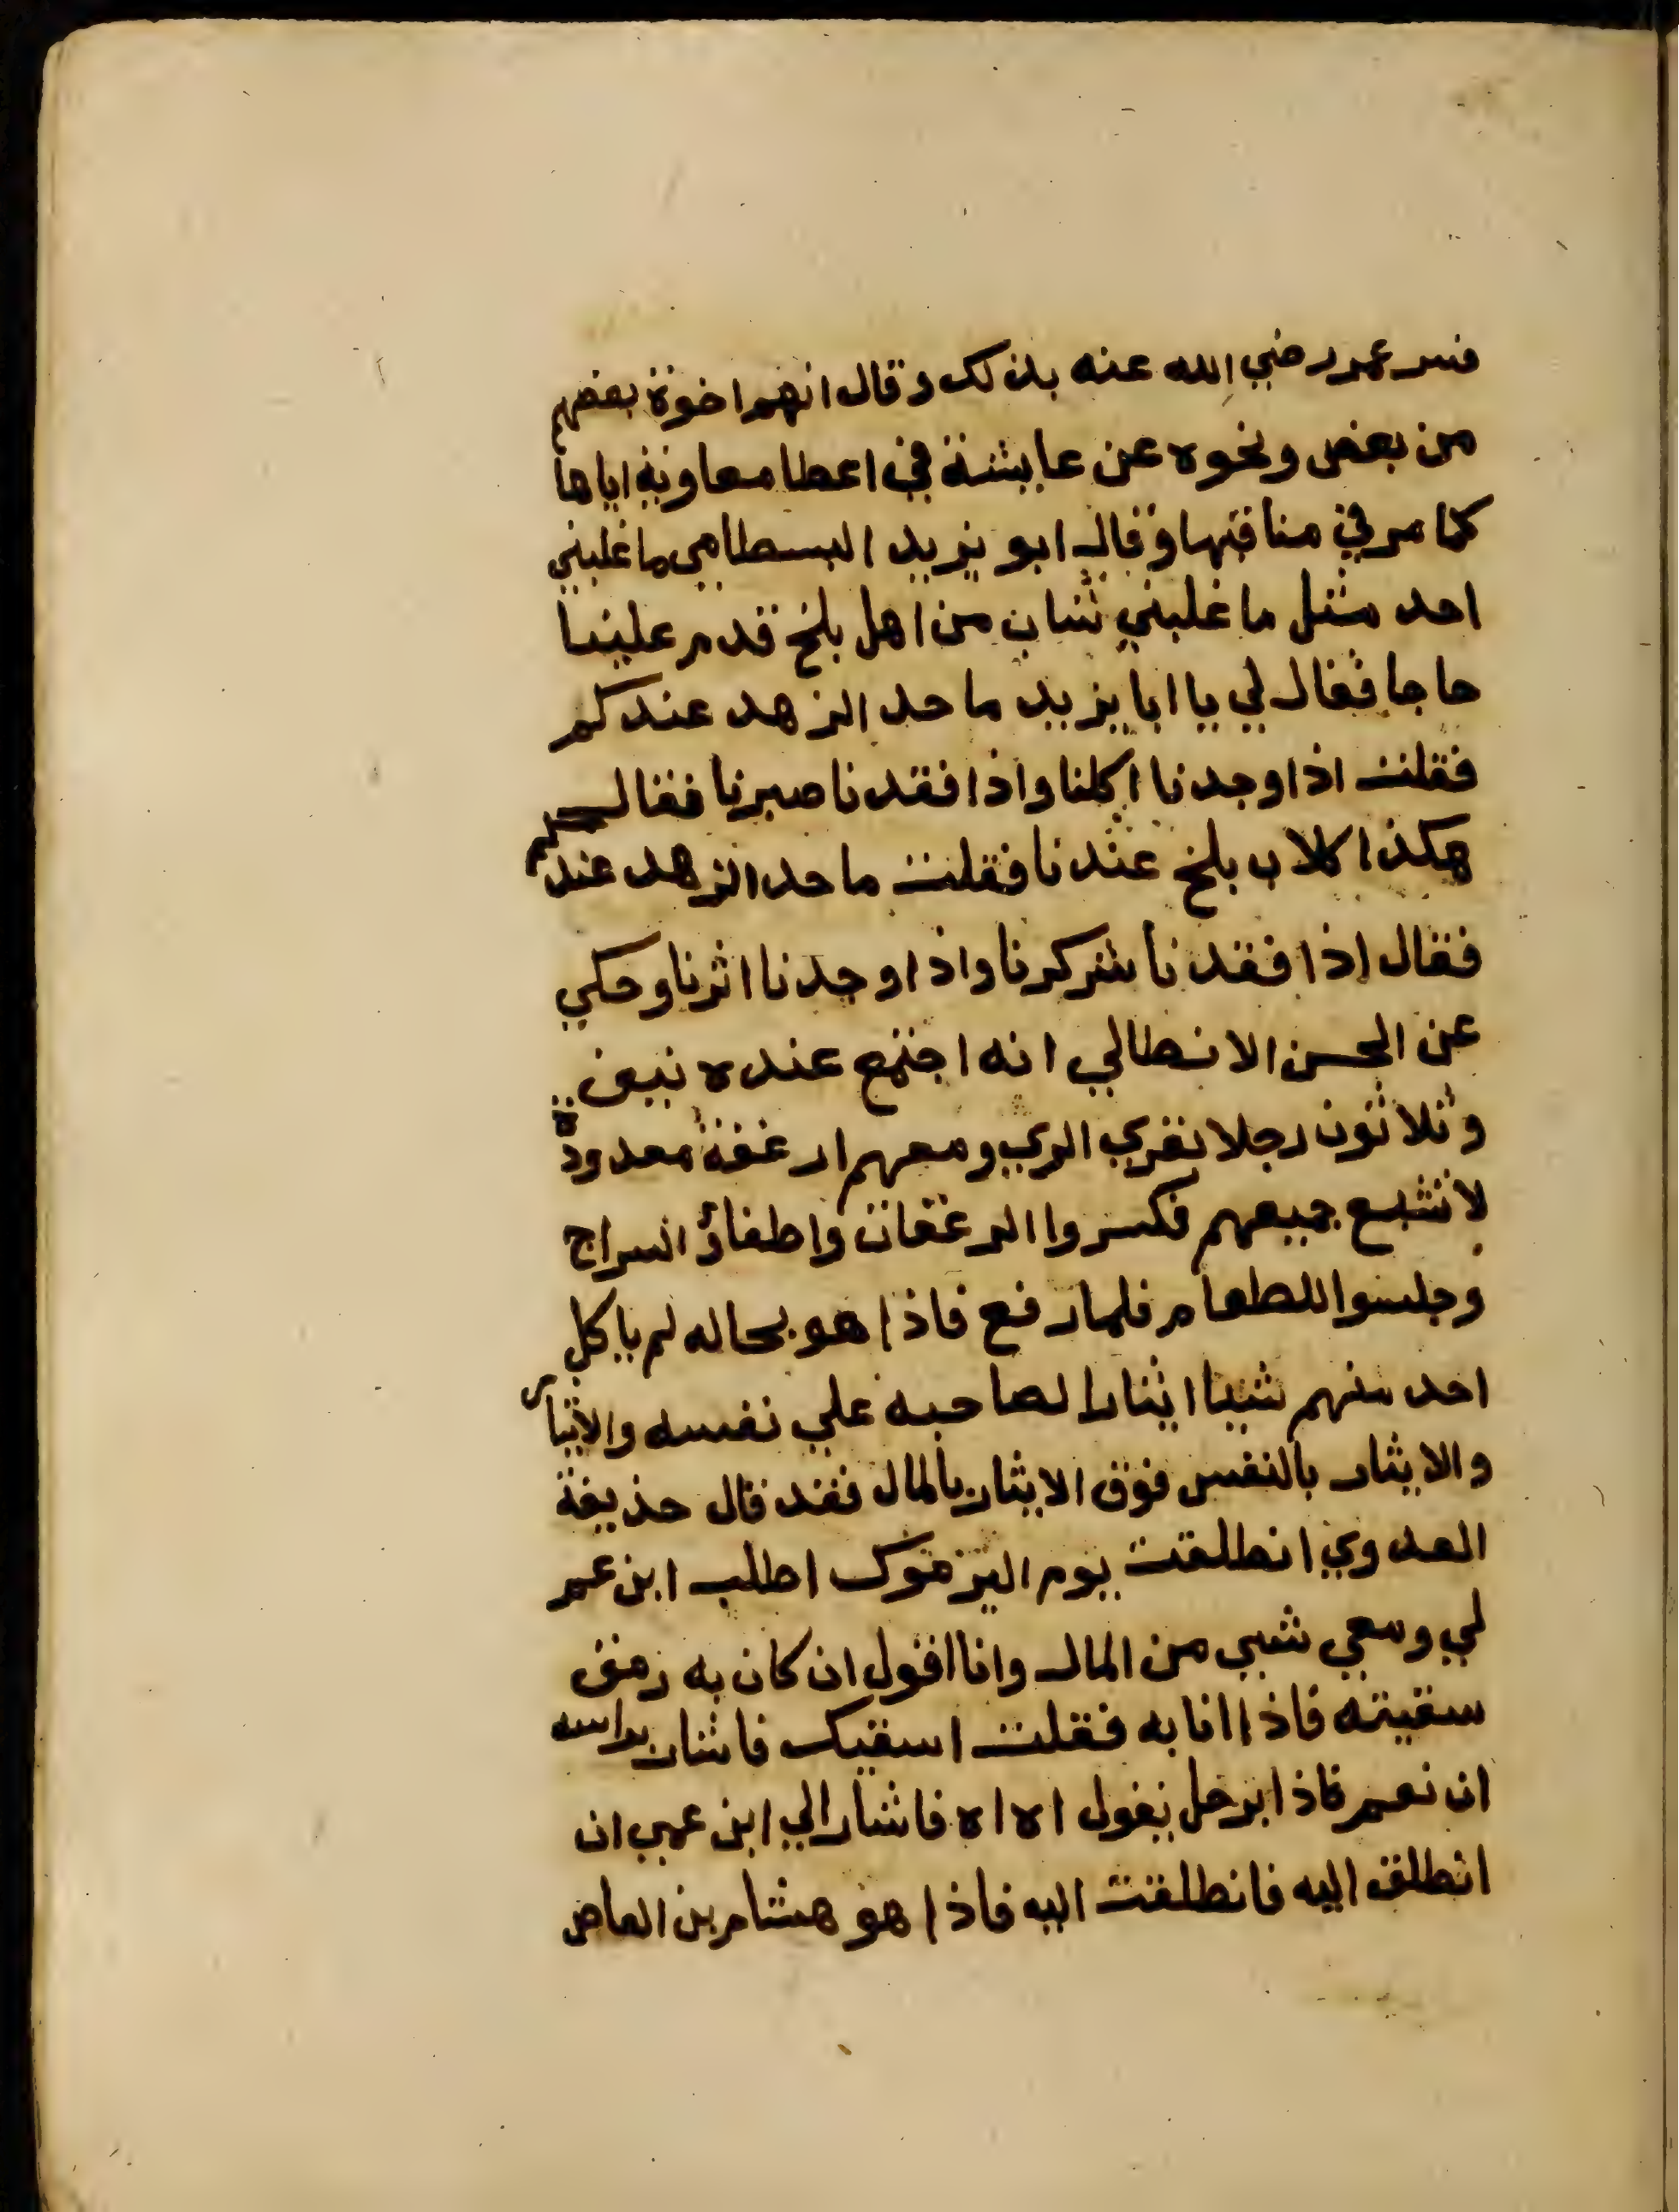 فسر عمر رضي الله عنه بذلك وقال انهم اخوة بعضهم
من بعض ونحوه عن عايشة في اعطا معاوية اياها
كما مر في مناقبها وقال ابو يزيد البسطامي ما غلبني
احد مثل ما غلبني شاب من اهل بلخ قدم علينا
حاجا فقال لي يا ابا يزيد ما حد الزهد عندكم
فقلت اذا وجدنا اكلنا واذا فقدنا صبرنا فقال
هكذا كلاب بلخ عندنا فقلت ما حد الزهد عندكم
فقال اذا فقدنا شكرنا واذا وجدنا اثرنا وحكي
عن الحسن الانطاكي انه اجتمع عنده نيف
وثلاثون رجلا بقري الري ومعهم ارغفة معدودة
لا تشبع جميعهم فكسروا الرغفان واطفاؤ السراج
وجلسوا للطعام فلما رفع فاذا هو بحاله لم ياكل
احد منهم شيا ايثارا لصاحبه علي نفسه والايثار
والايثار بالنفس فوق الايثار بالمال فقد قال حذيفة
العدوي انطلقت يوم اليرموك اطلب ابن عم
لي ومعي شيي من المال وانا اقول ان كان به رمق
سقيته فاذا انا به فقلت اسقيك فاشار براسه
ان نعم فاذا برجل يقول اه اه فاشار الي ابن عمي ان
انطلق اليه فانطلقت اليه فاذا هو هشام بن العاص